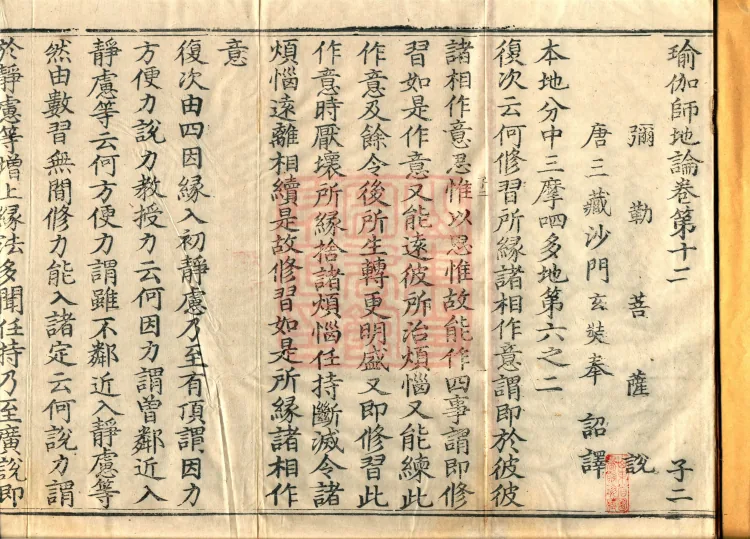 瑜伽師地論卷第十二 子二
彌勒菩薩說
唐三藏沙門玄奘奉 詔譯
本地分中三摩呬多地第六之二
復次云何修習所緣諸相作意謂即於彼彼
諸相作意思惟以思惟故能作四事謂即修
習如是作意又能遠彼所治煩惱又能練此
作意及餘令後所生轉更明盛又即修習此
作意時厭壞所緣捨諸煩惱任持斷滅令諸
煩惱遠離相續是故修習如是所緣諸相作
意
復次由四因緣入初靜慮乃至有頂謂因力
方便力說力教授力云何因力謂曾鄰近入
靜慮等云何方便力謂雖不鄰近入靜慮等
然由數習無間修力能入諸定云何說力謂
於靜慮等增上緣法多聞任持乃至廣說即